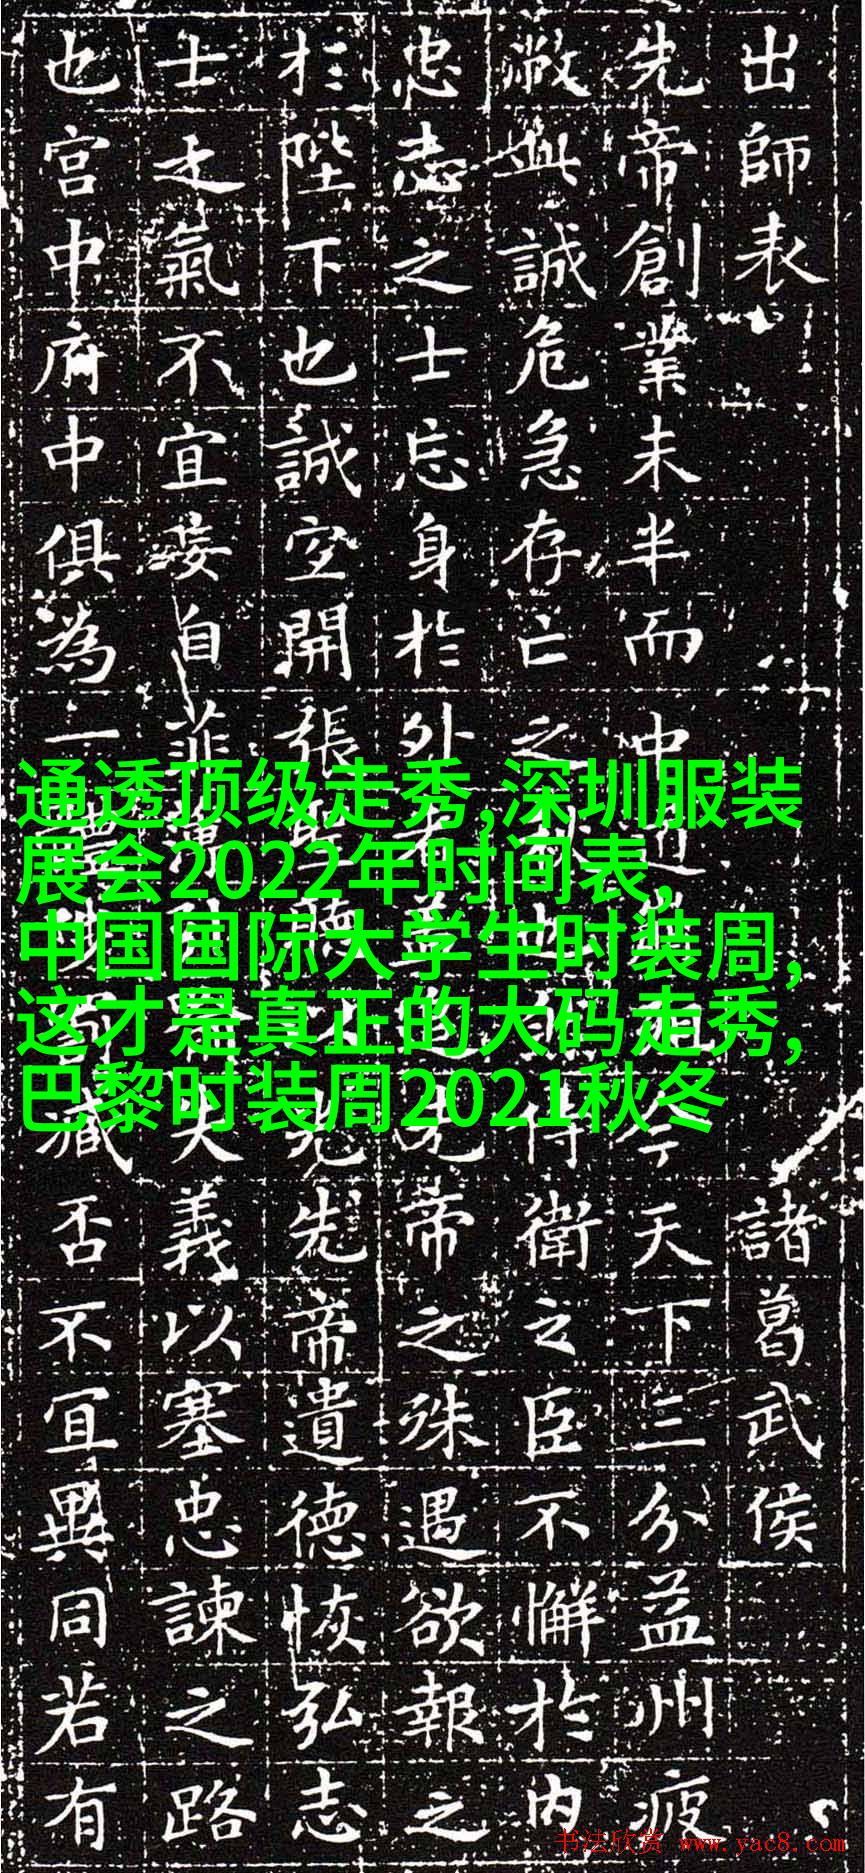 出師表 諸葛武侯
先帝創業未半而中道今天下三分益州疲
敝此誠危急存亡之秋侍衛之臣不懈於内
忠志之士忘身於外者追先帝之殊遇欲報之
於陛下也誠宜開張聖聽光先帝遺德恢弘志
士之氣不宜妄自菲失義以塞忠諫之路
也宫中府中俱為一體臧否不宜異同若有
通透顶级走秀,深圳服装
展会2022年时间表,
中国国际大学生时装周,
这才是真正的大码走秀,
巴黎时装周2021秋冬
书法欣赏 www.yac8.com